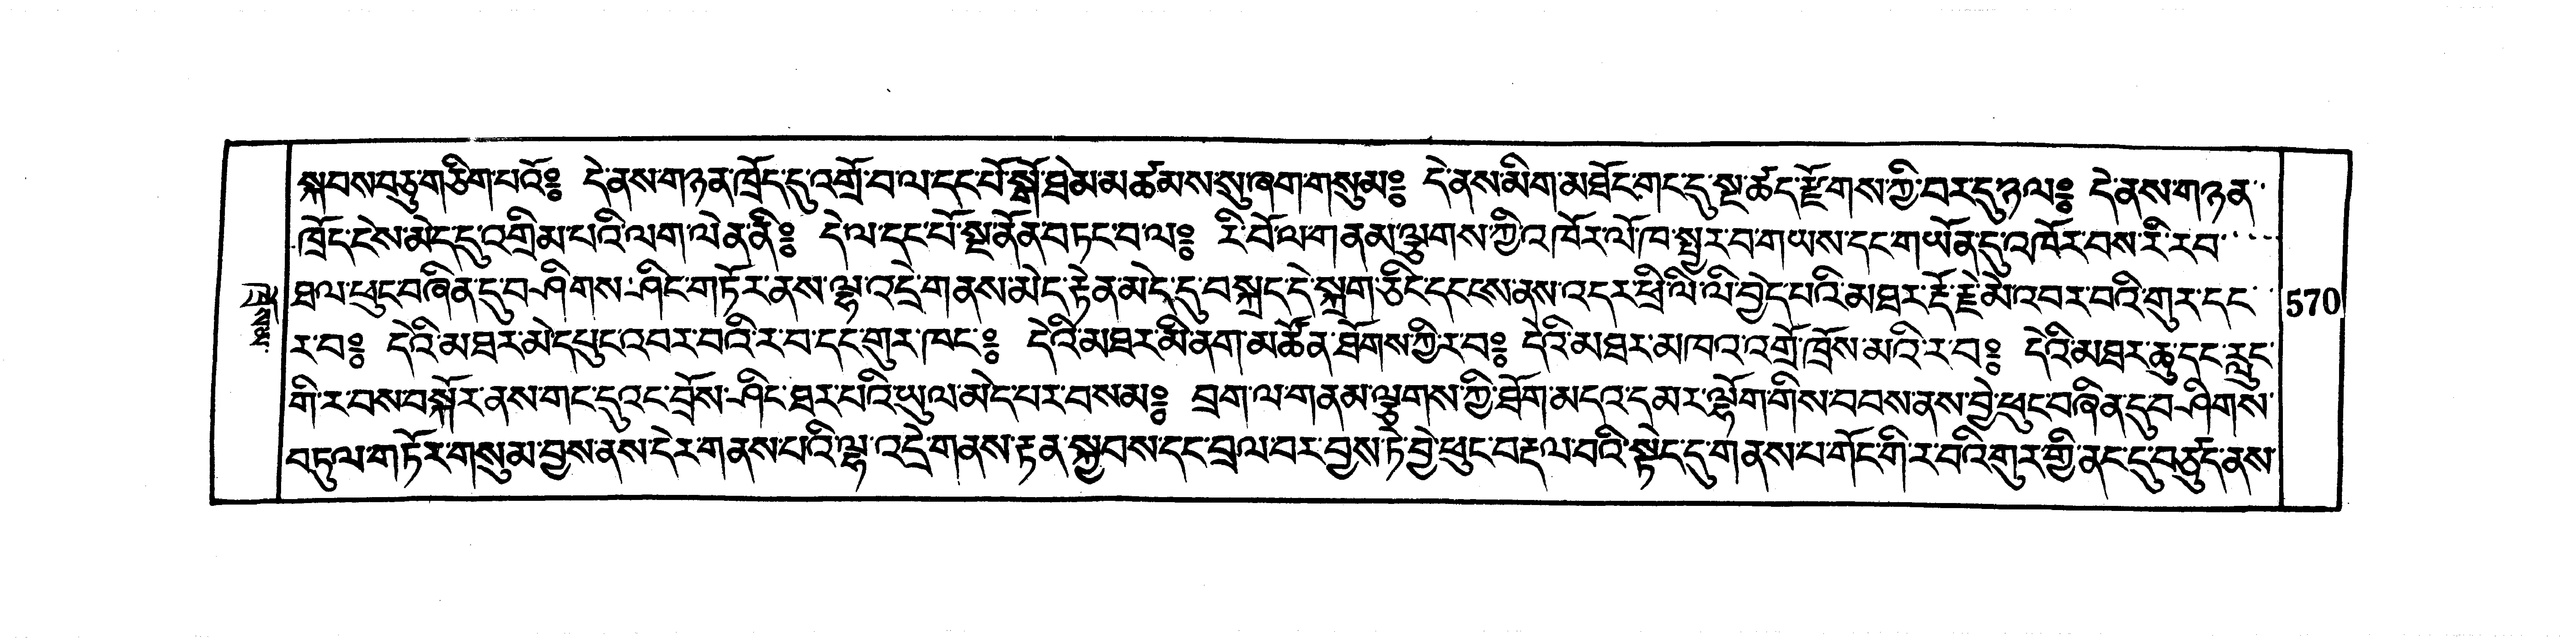 སྐབས་བཅུ་གཅིག་པའོ༔ དེ་ནས་གཉན་ཁྲོད་དུ་འགྲོ་བ་ལ་དང་པོ་སྒོ་ཐེམ་མཚམས་སུ་ཞག་གསུམ༔ དེ་ནས་མིག་མཐོང་གང་དུ་སྔ་ཚད་རྫོགས་ཀྱི་བར་དུ་ཉལ༔ དེ་ནས་གཉན་
ཁྲོད་ངེས་མེད་དུ་འགྲིམ་པའི་ལག་ལེན་ནི༔ དེ་ལ་དང་པོ་སྔ་ནོན་བཏང་བ་ལ༔ རི་བོ་ལ་གནམ་ལྕགས་ཀྱི་འཁོར་ལོ་ཁ་སྦྱར་བ་གཡས་དང་གཡོན་དུ་འཁོར་བས་རི་རབ་
ཐལ་ཕུང་བཞིན་དུ་བཤིགས་ཤིང་གཏོར་ནས་ལྷ་འདྲེ་གནས་མེད་རྟེན་མེད་དུ་བསྐྲད་དེ་སྐྲག་ཅིང་དངངས་ནས་འདར་ཕྲི་ལི་ལི་བྱེད་པའི་མཐར་རྡོ་རྗེ་མེ་འབར་བའི་གུར་དང་
ར་བ༔ དེའི་མཐར་མེ་དཔུང་འབར་བའི་ར་བ་དང་གུར་ཁང་༔ དེའི་མཐར་མི་ནག་མཚོན་ཐོགས་ཀྱི་ར་བ༔ དེའི་མཐར་མཁའ་འགྲོ་ཁྲོས་མའི་ར་བ༔ དེའི་མཐར་ཆུ་དང་རླུང་
གི་ར་བས་བསྐོར་ནས་གང་དུའང་བྲོས་ཤིང་ཐར་པའི་ཡུལ་མེད་པར་བསམ༔ བྲག་ལ་གནམ་ལྕགས་ཀྱི་ཐོག་མདའ་དམར་ལྷོག་གིས་བབས་ནས་བྱེ་ཕུང་བཞིན་དུ་བཤིགས་
བཏུལ་གཏོར་གསུམ་བྱས་ནས་དེར་གནས་པའི་ལྷ་འདྲེ་གནས་རྟེན་སྐྱབས་དང་བྲལ་བར་བྱས་ཏེ་བྱེ་ཕུང་བརྡལ་བའི་སྟེང་དུ་གནས་པ་གོང་གི་ར་བའི་གུར་གྱི་ནང་དུ་བཅུད་ནས་
570